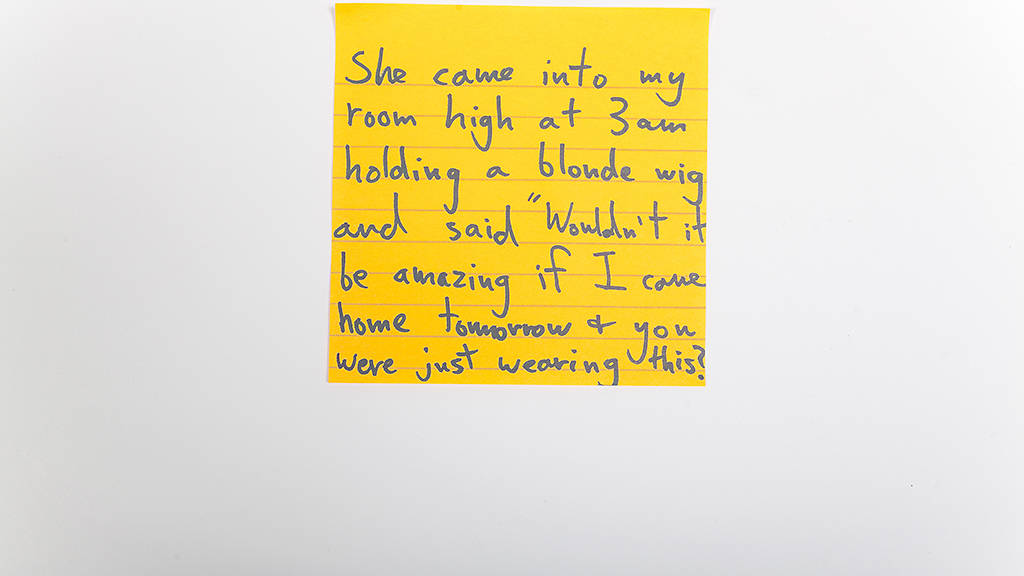 She came into my
room high at 3am
holding a blonde wig
and said "Wouldn't it
be amazing if I came
home tomorrow + you
were just wearing this?